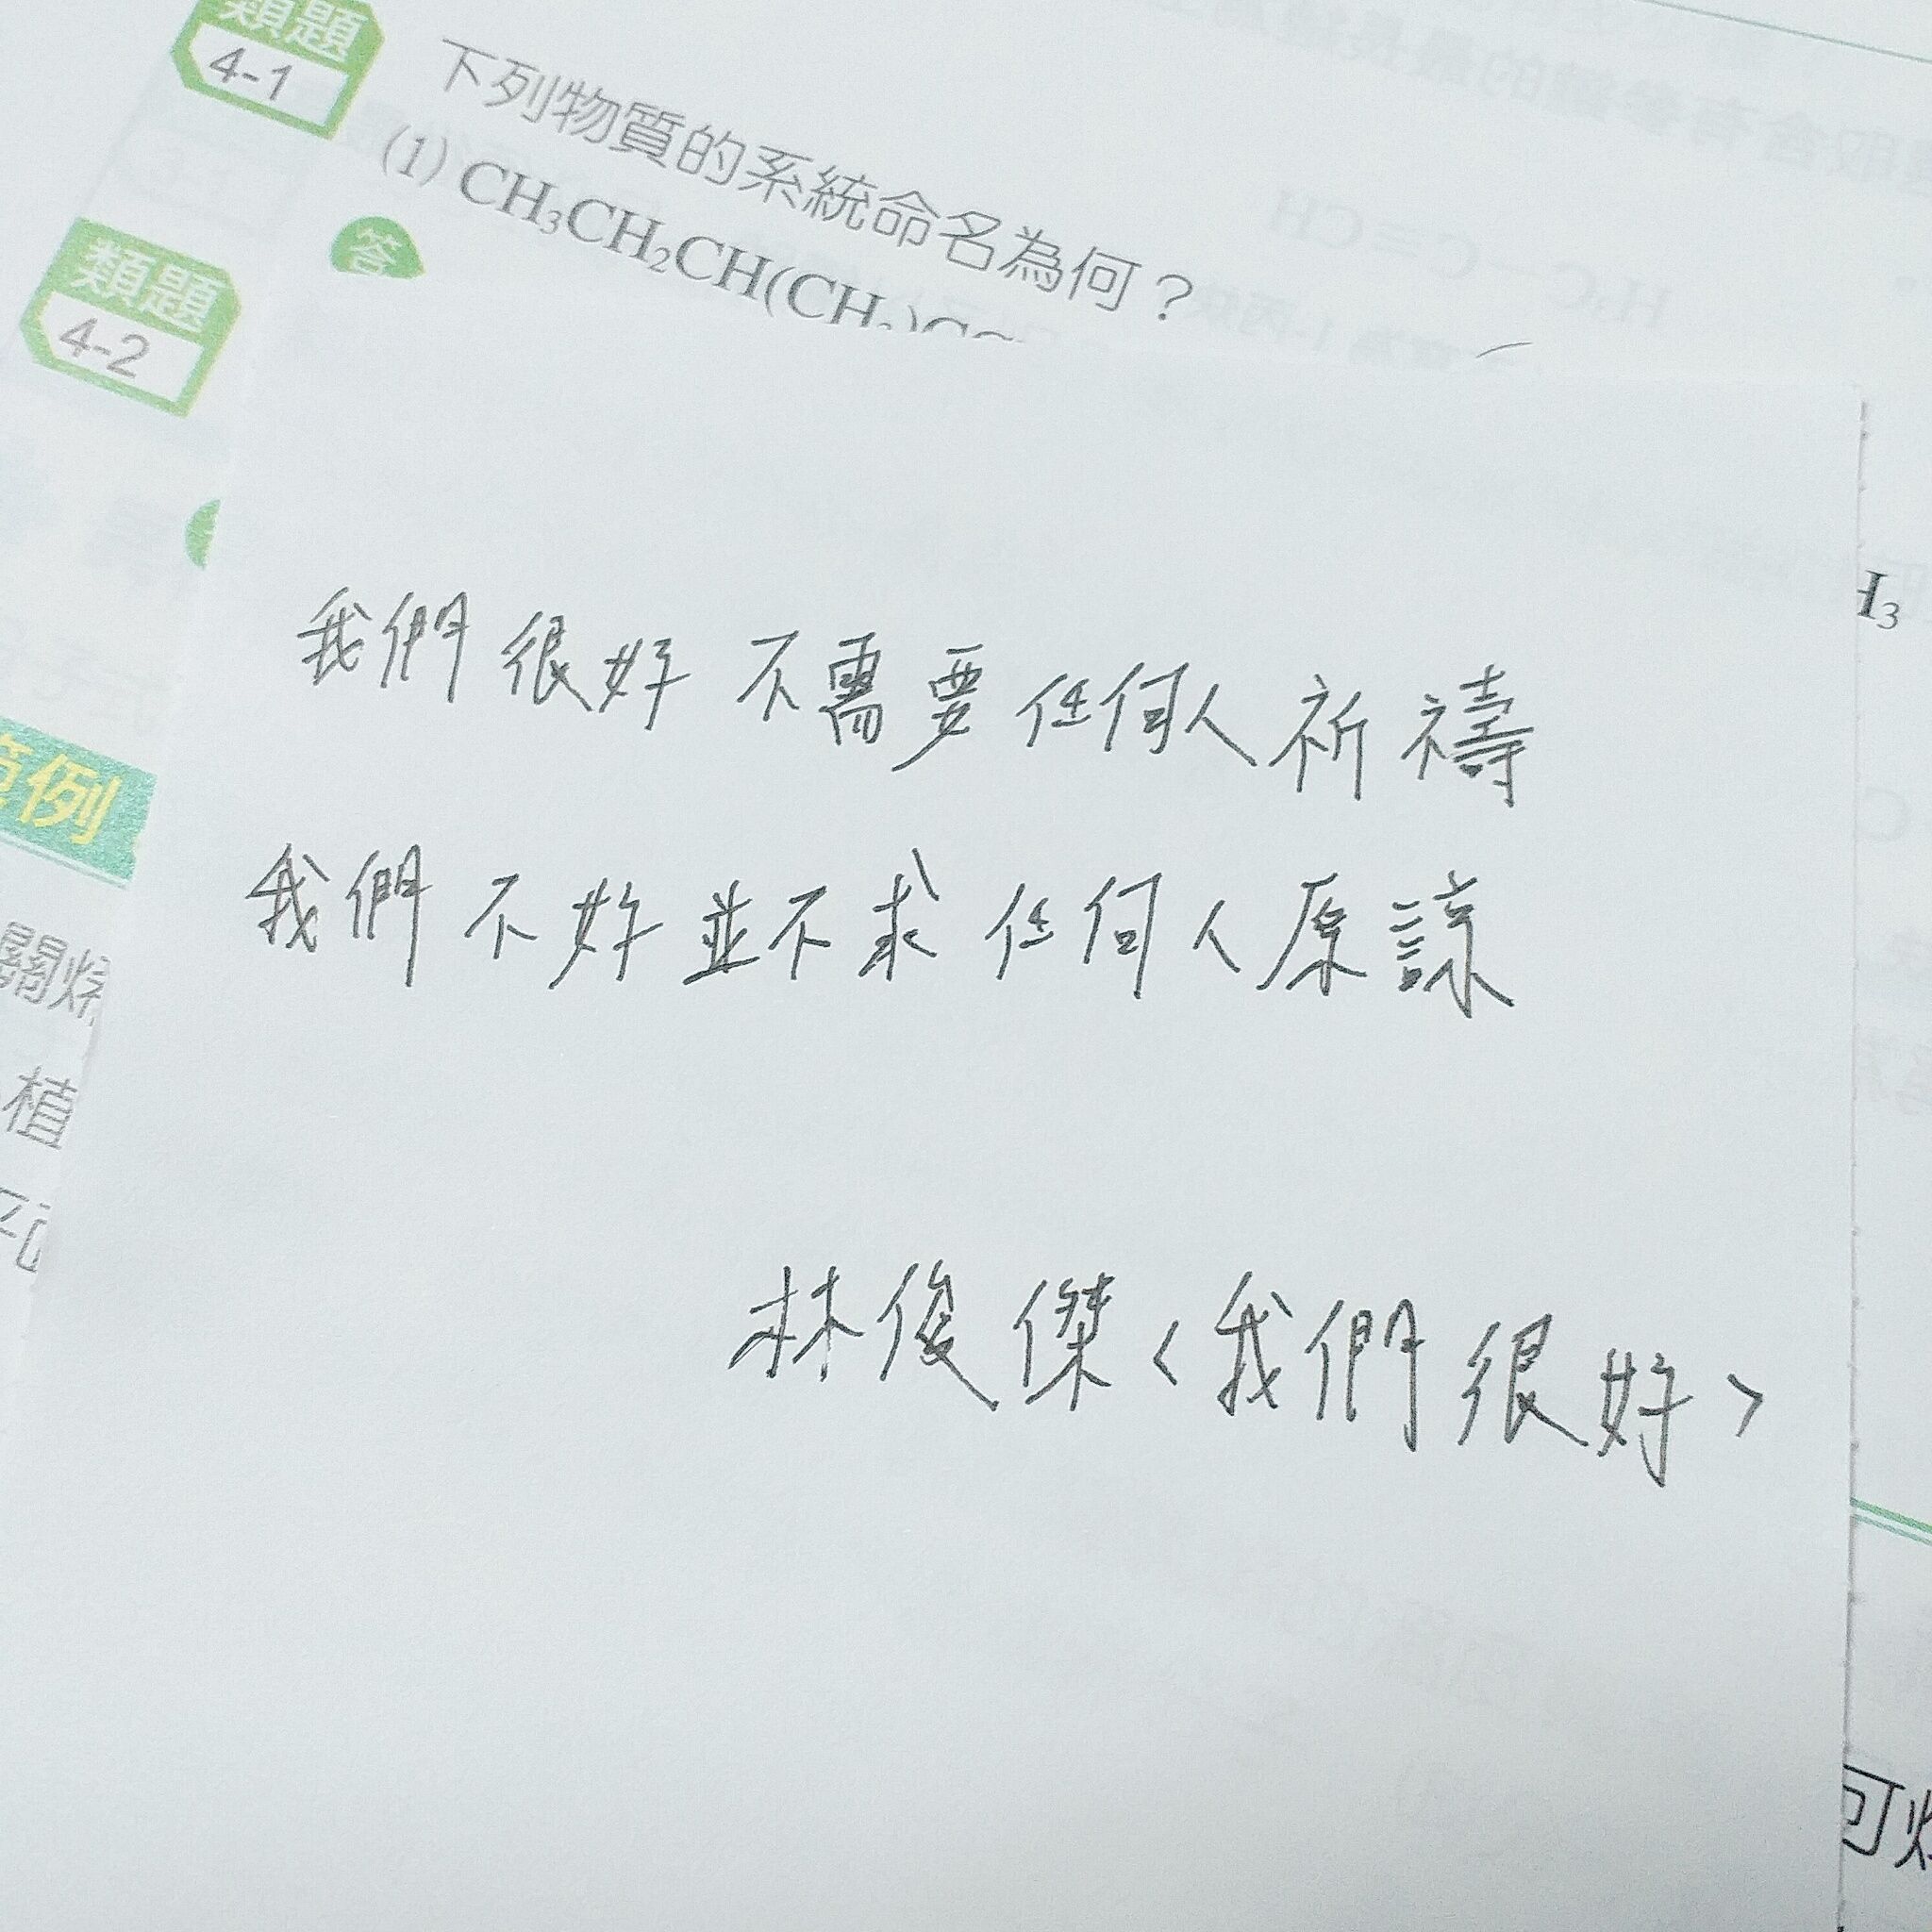 類題
4-1
下列物質的系統命名為何？
(1) CH₃CH₂CH(CH
答
類題
4-2
H₃
我們很好 不需要任何人祈禱
範例
我們不好並不求任何人原諒
關烴
植
林俊傑〈我們很好〉
可